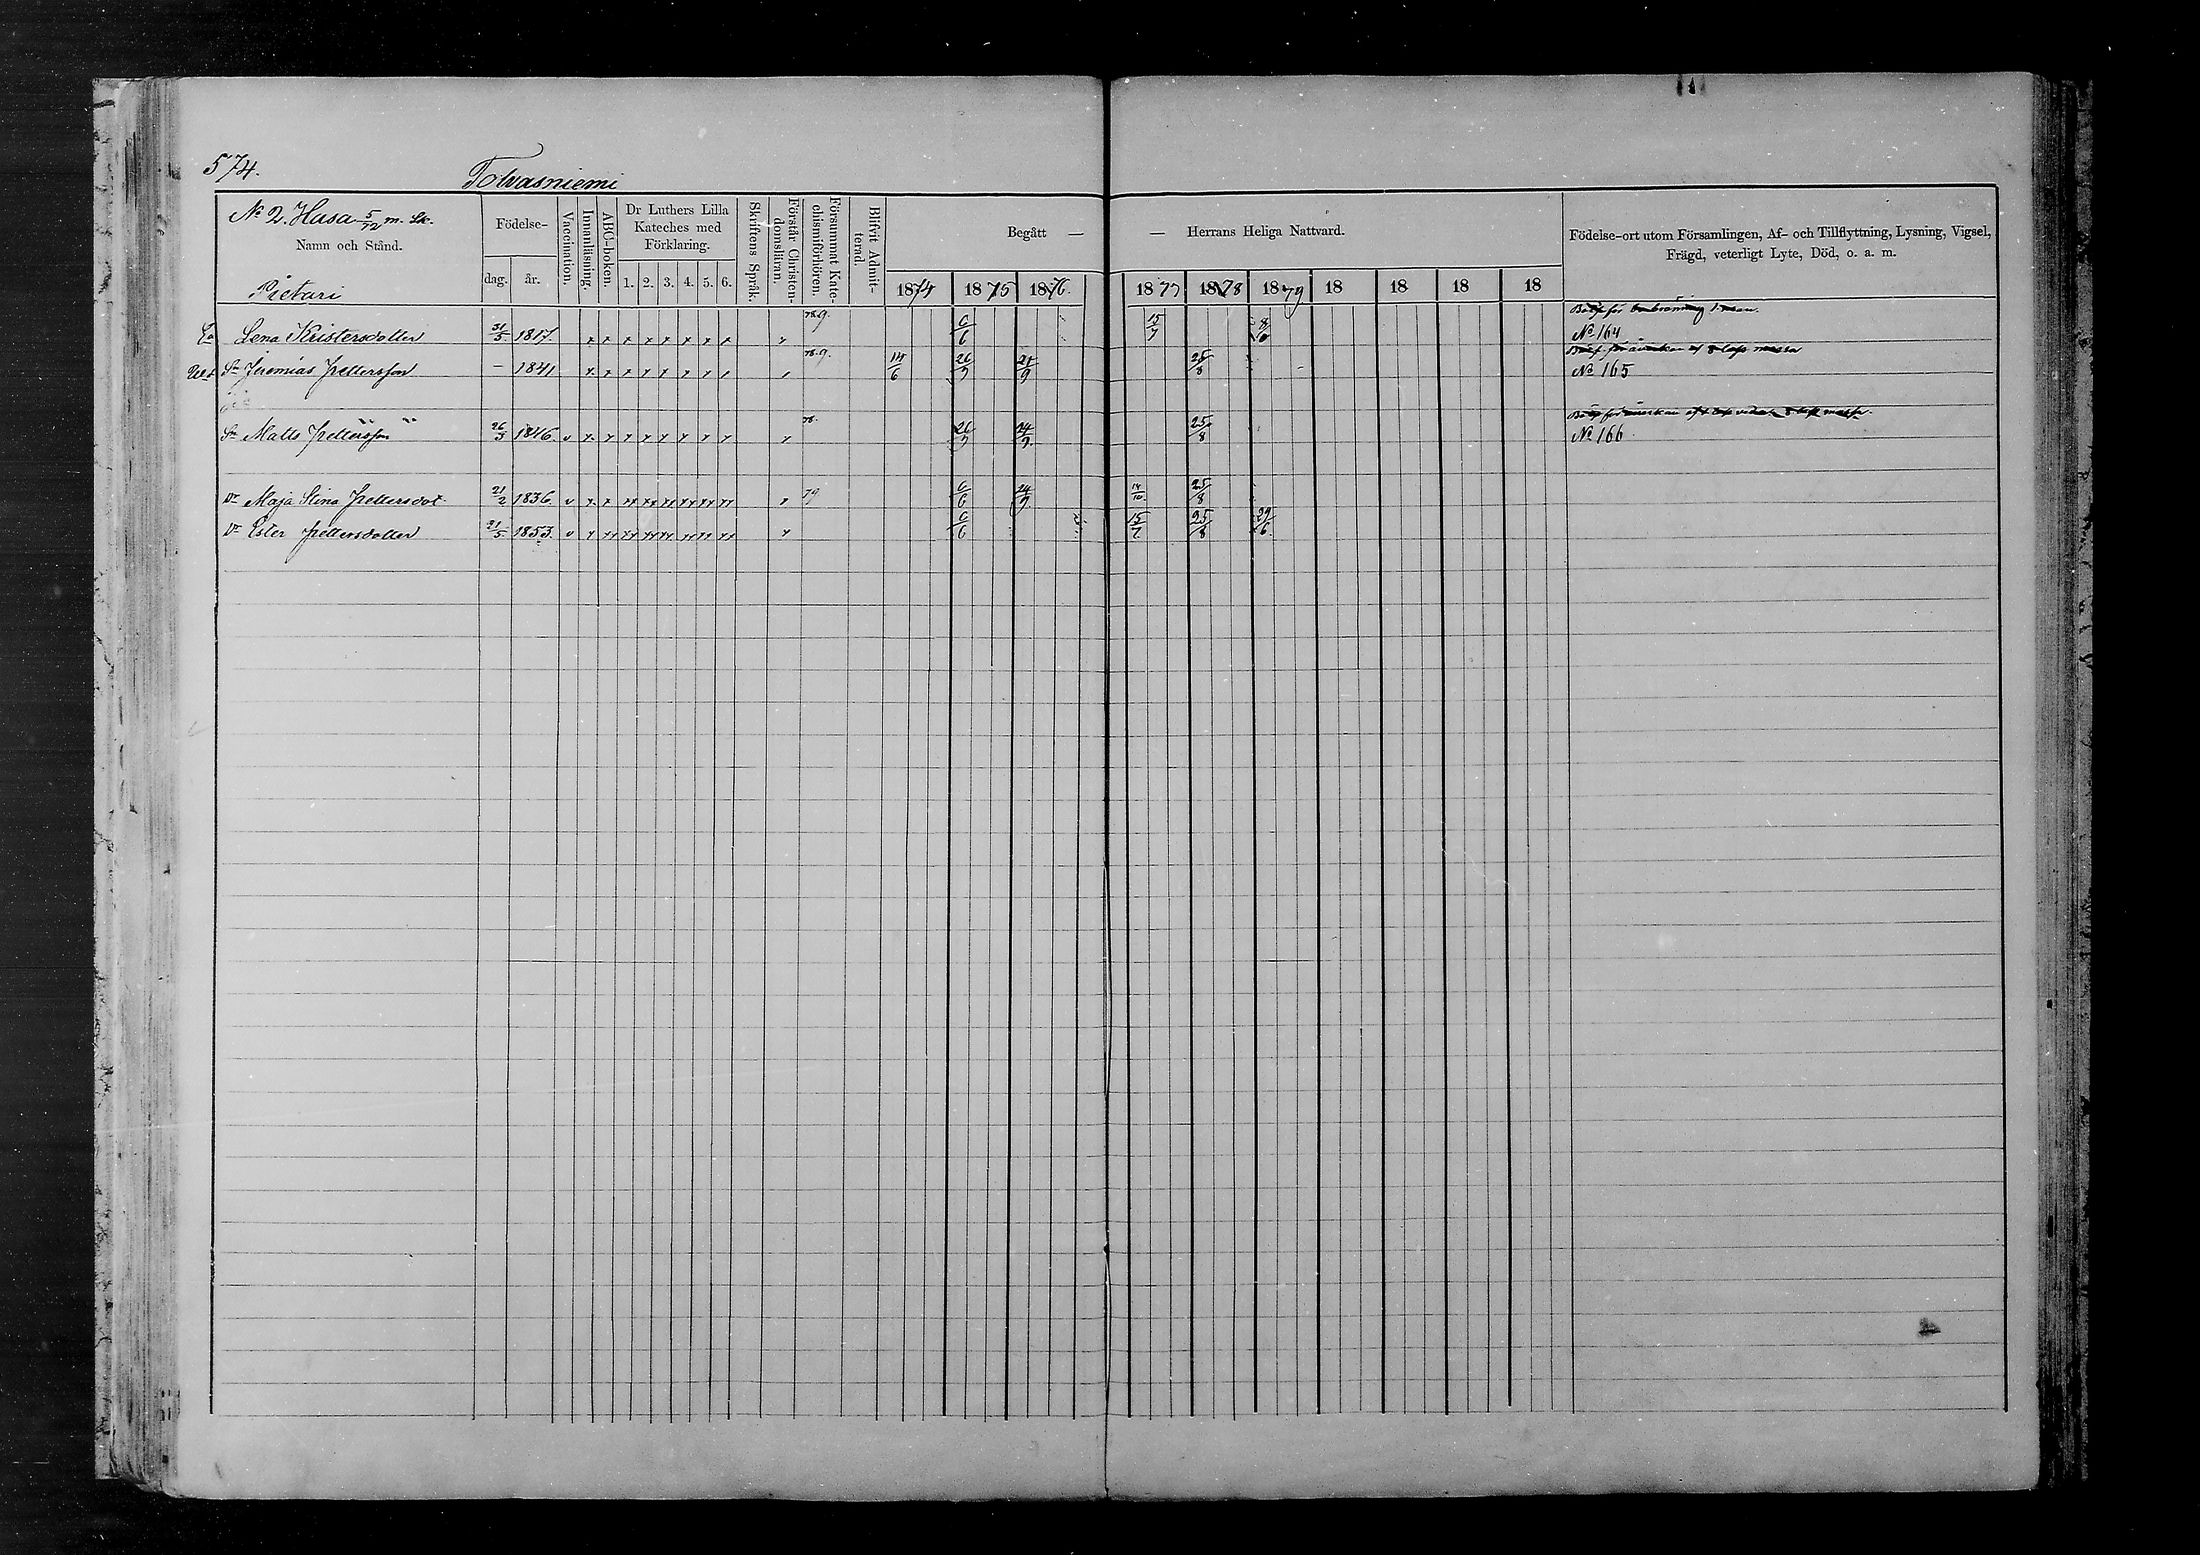 574.
Tolvasniemi
No 2. Hasa 5/72 m. Sk.
Namn och Stånd.
Pietari
Födelse-
dag. år.
Vaccination.
Innanläsning.
ABC-boken.
Dr Luthers Lilla Kateches med Förklaring.
1. 2. 3. 4. 5. 6.
Skriftens Språk.
Förstår Christendomsläran.
Försummat Katechismiförhören.
Blifvit Admitterad.
Begått — — Herrans Heliga Nattvard.
1874 1875 1876. 1877 1878 1879 18 18 18 18
Födelse-ort utom Församlingen, Af- och Tillflyttning, Lysning, Vigsel,
Frägd, veterligt Lyte, Död, o. a. m.
Lena Kristersdotter 31/5 1817. 78.9. 6/6 15/7 8/10 No 164
Sn Jeremias Pettersson – 1841 78.9. 14/6 26/9 24/9 25/8 No 165
Sn Matts Pettersson 26/3 1846 v 78. 26/9 24/9 25/8 No 166
Dr Maja Stina Pettersdot. 21/2 1836 v 79 6/6 24/9 14/10 25/8
Dr Ester Pettersdotter 21/5 1853. v 6/6 15/7 25/8 29/6